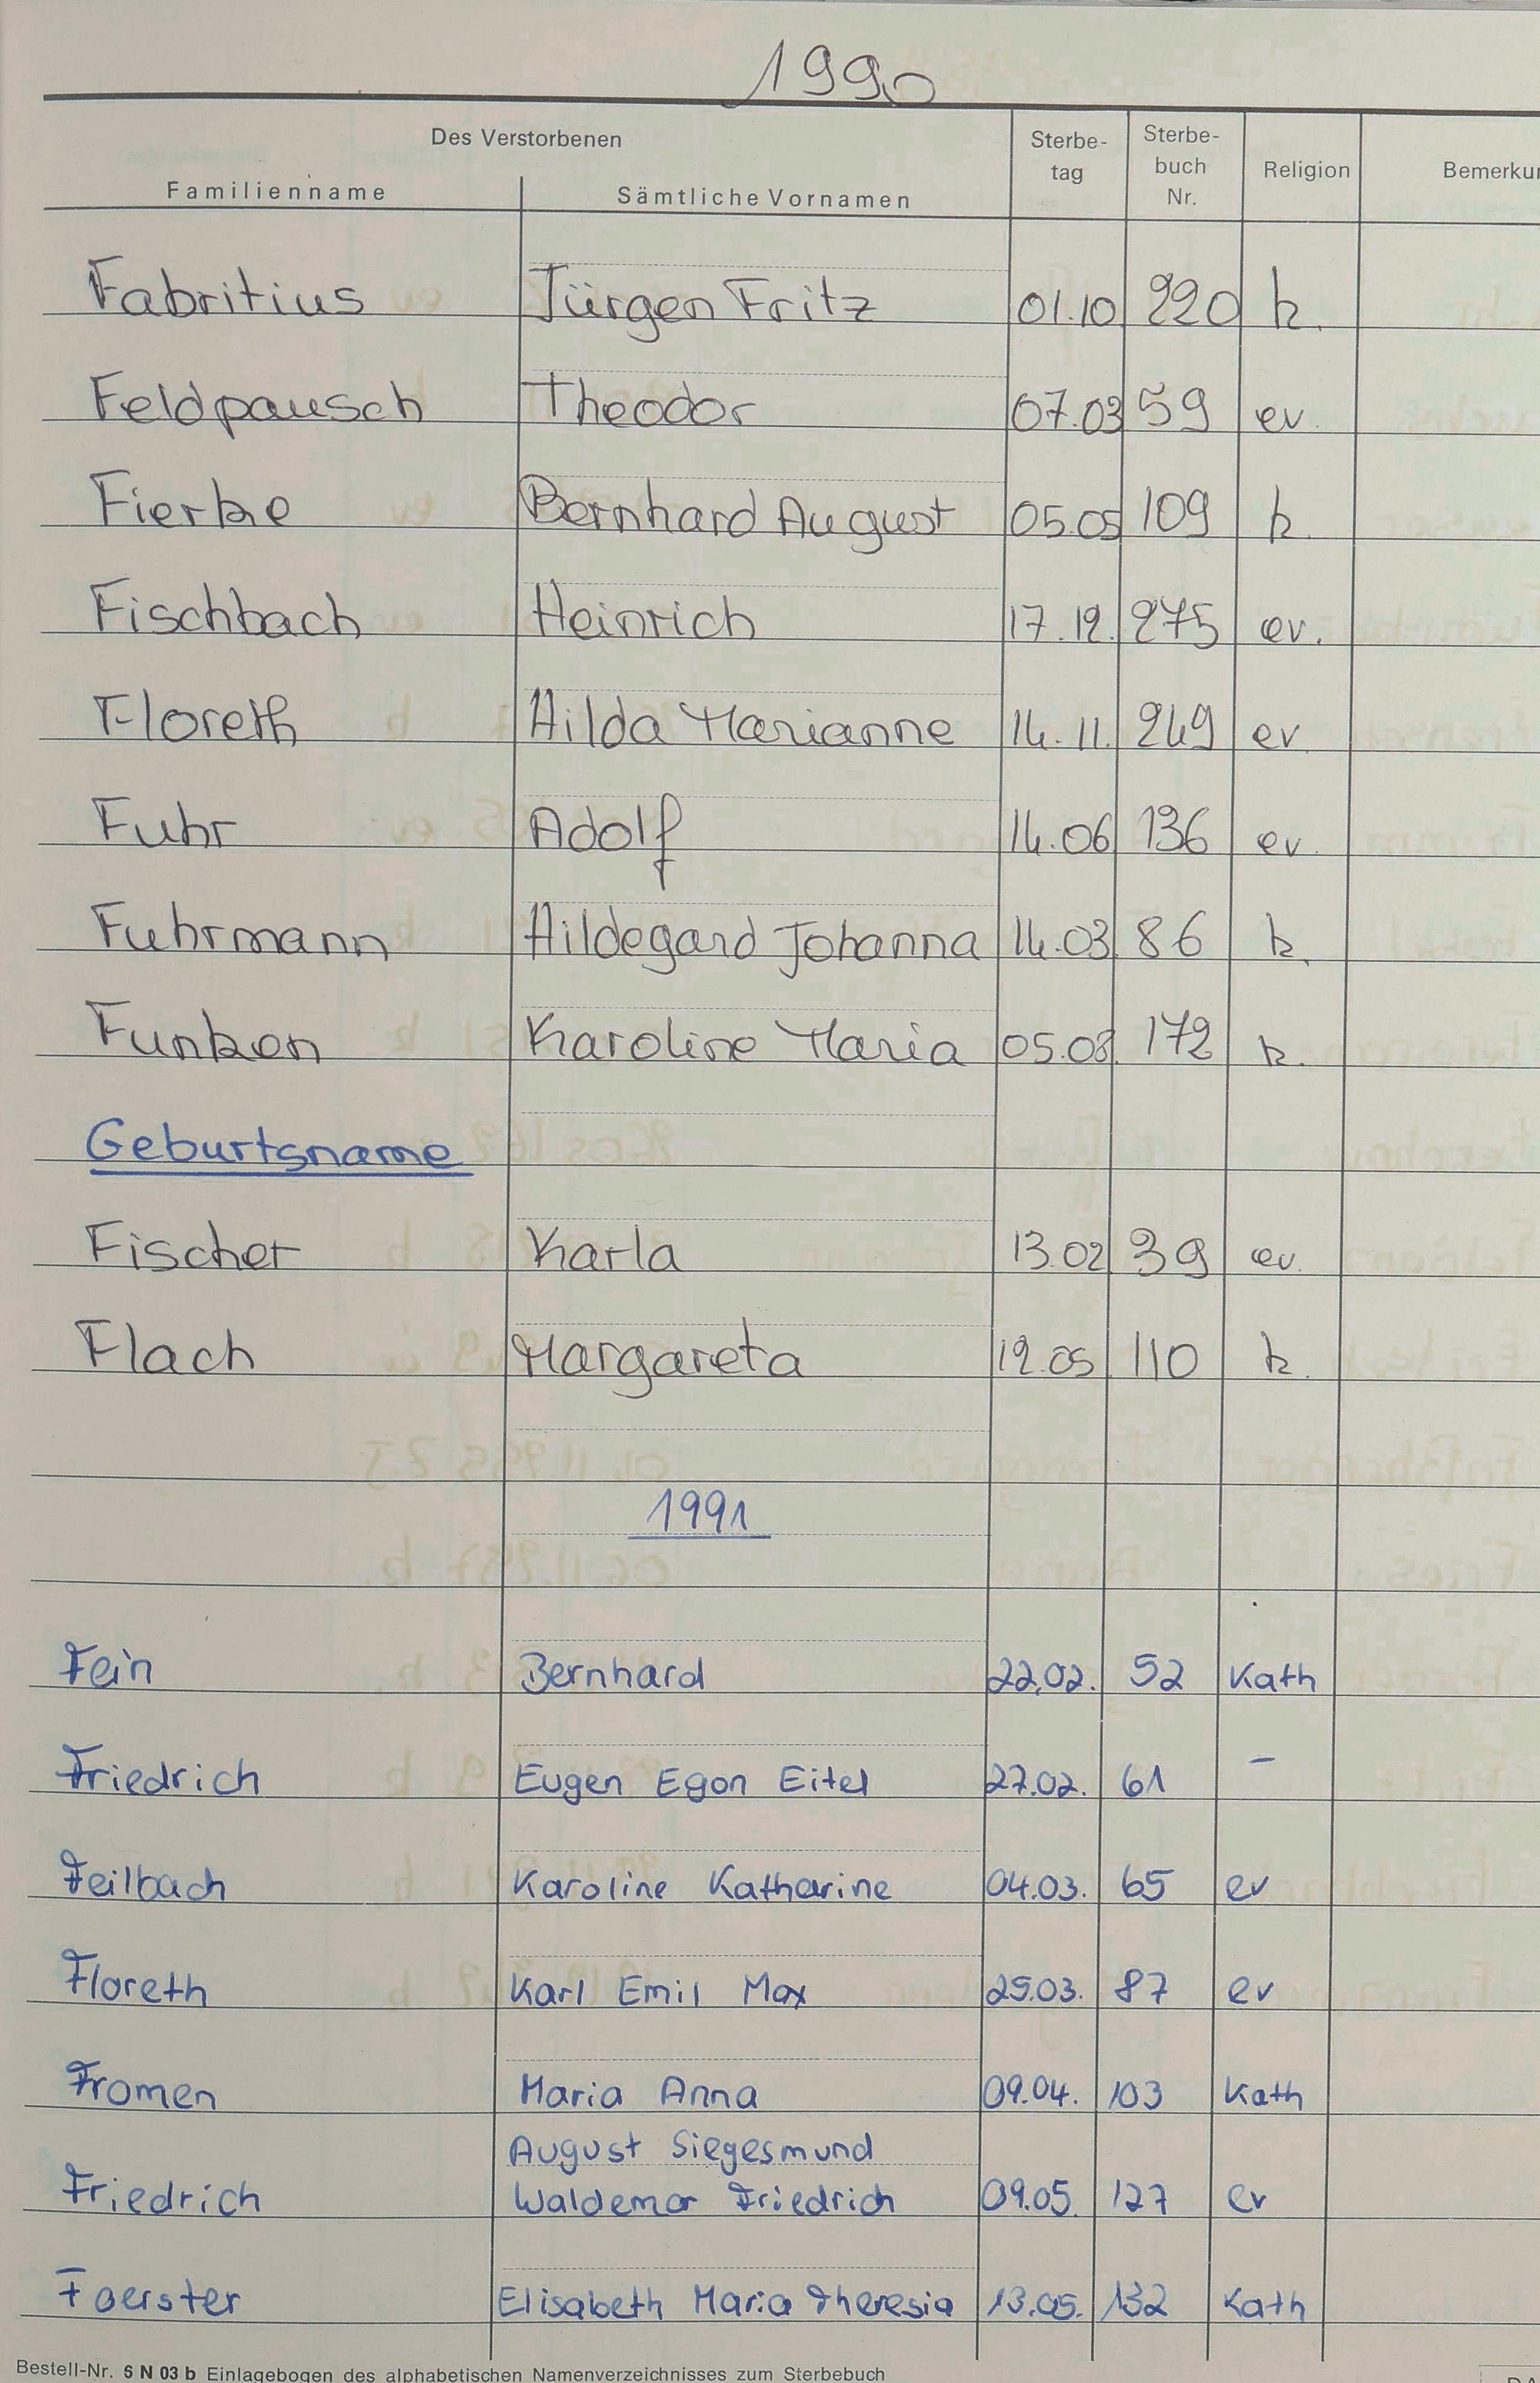 1990
Des Verstorbenen
Familienname Sämtliche Vornamen Sterbe-tag Sterbe-buch Nr. Religion Bemerkun
Fabritius Jürgen Fritz 01.10 220 k.
Feldpausch Theodor 07.03 59 ev.
Fierke Bernhard August 05.05 109 k.
Fischbach Heinrich 17.12. 275 ev.
Floreth Hilda Marianne 14.11. 249 ev.
Fuhr Adolf 14.06 136 ev.
Fuhrmann Hildegard Johanna 14.03 86 k.
Funken Karoline Maria 05.08. 172 k.
Geburtsname
Fischer Karla 13.02 39 ev.
Flach Margareta 12.05 110 k.
1991
Fein Bernhard 22.02. 52 Kath
Friedrich Eugen Egon Eitel 27.02. 61 –
Feilbach Karoline Katharine 04.03. 65 ev
Floreth Karl Emil Max 25.03. 87 ev
Fromen Maria Anna 09.04. 103 Kath
August Siegesmund
Friedrich Waldemar Friedrich 09.05. 127 ev
Foerster Elisabeth Maria Theresia 13.05. 132 Kath
Bestell-Nr. 6 N 03 b Einlagebogen des alphabetischen Namenverzeichnisses zum Sterbebuch